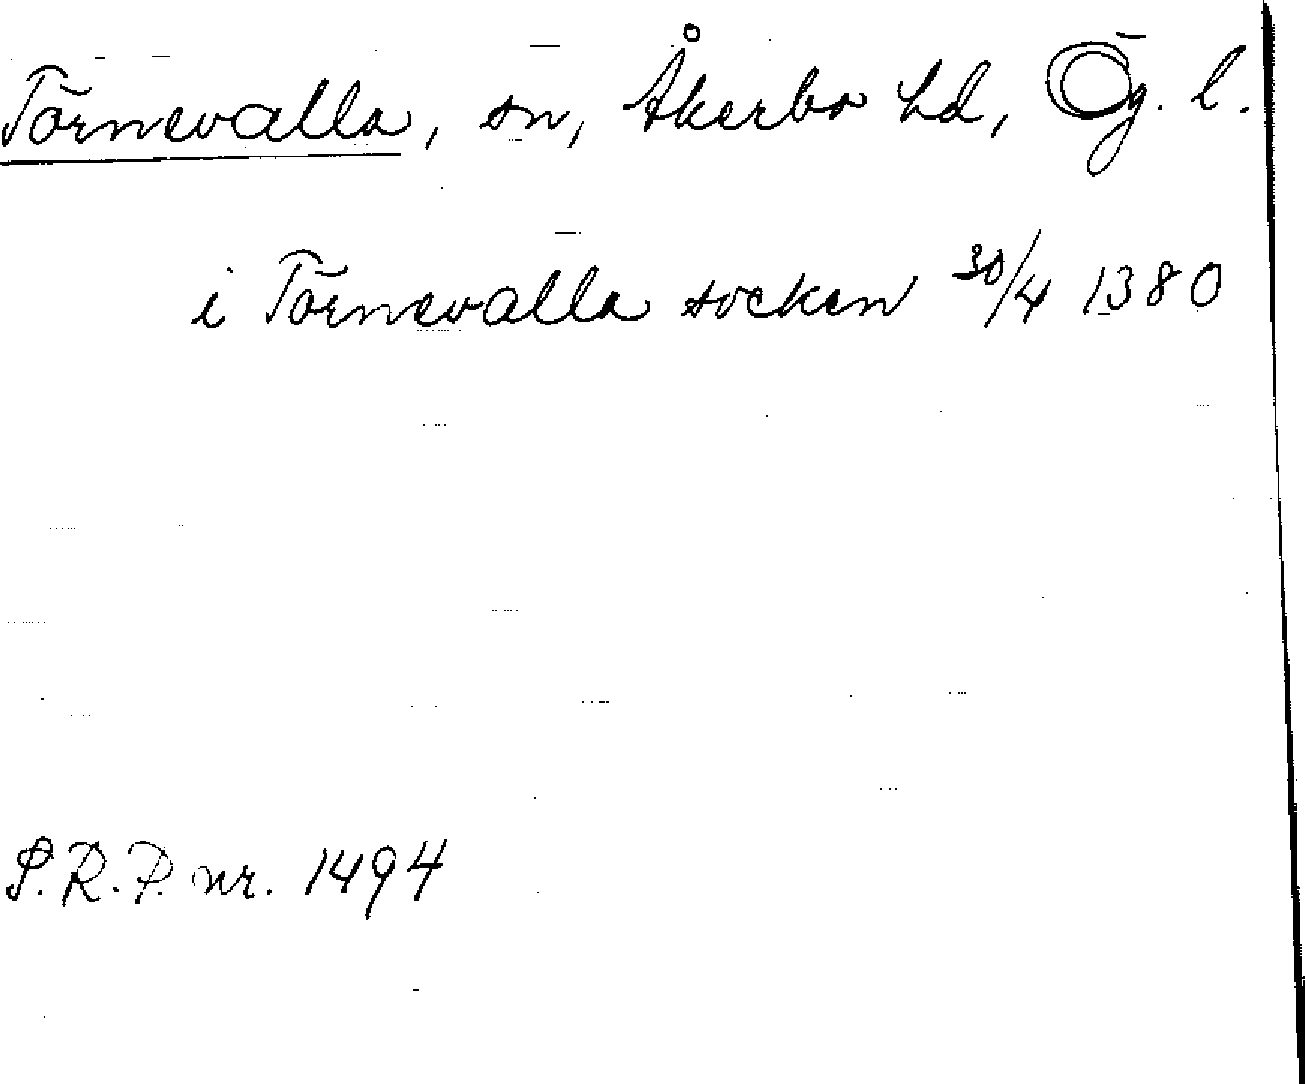 Törnevalla, sn, Åkerbo hd, Ög. l.
i Törnevalla socken 30/4 1380
S.R.P. nr. 1494